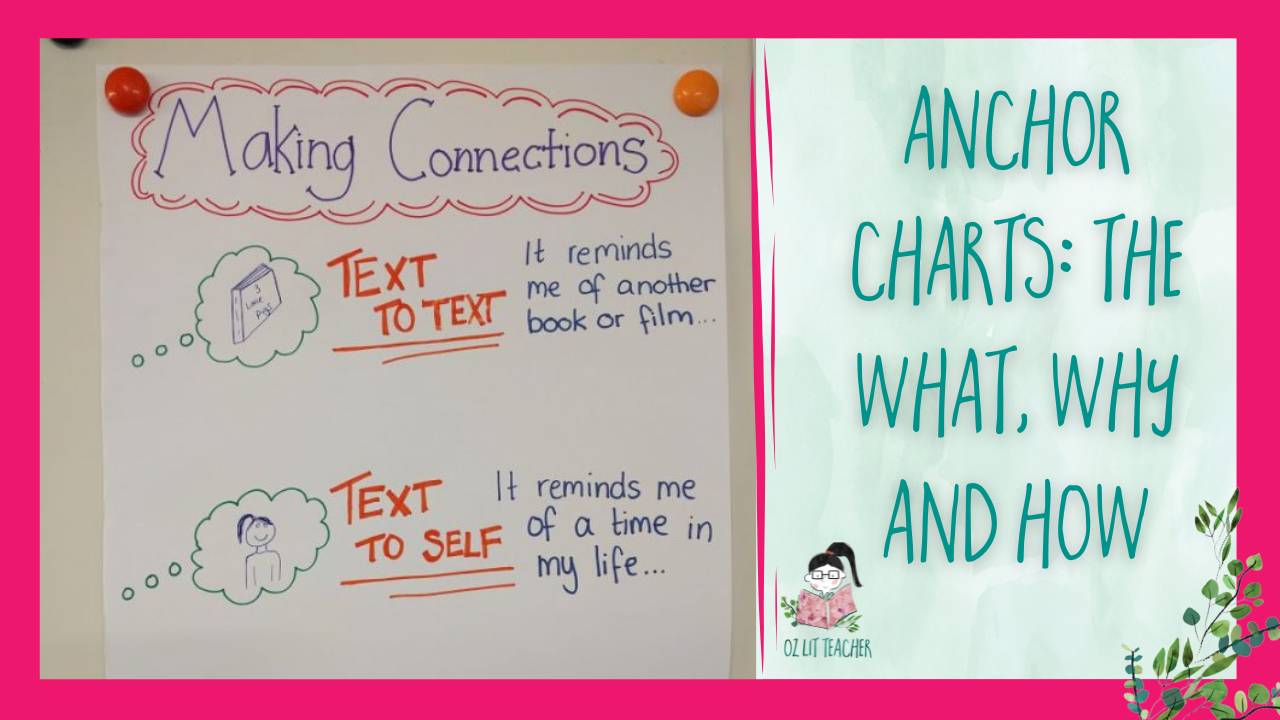 Making Connections
3
Little
Pigs
TEXT
TO TEXT
It reminds
me of another
book or film...
TEXT
TO SELF
It reminds me
of a time in
my life...
ANCHOR
CHARTS: THE
WHAT, WHY
AND HOW
OZ LIT TEACHER